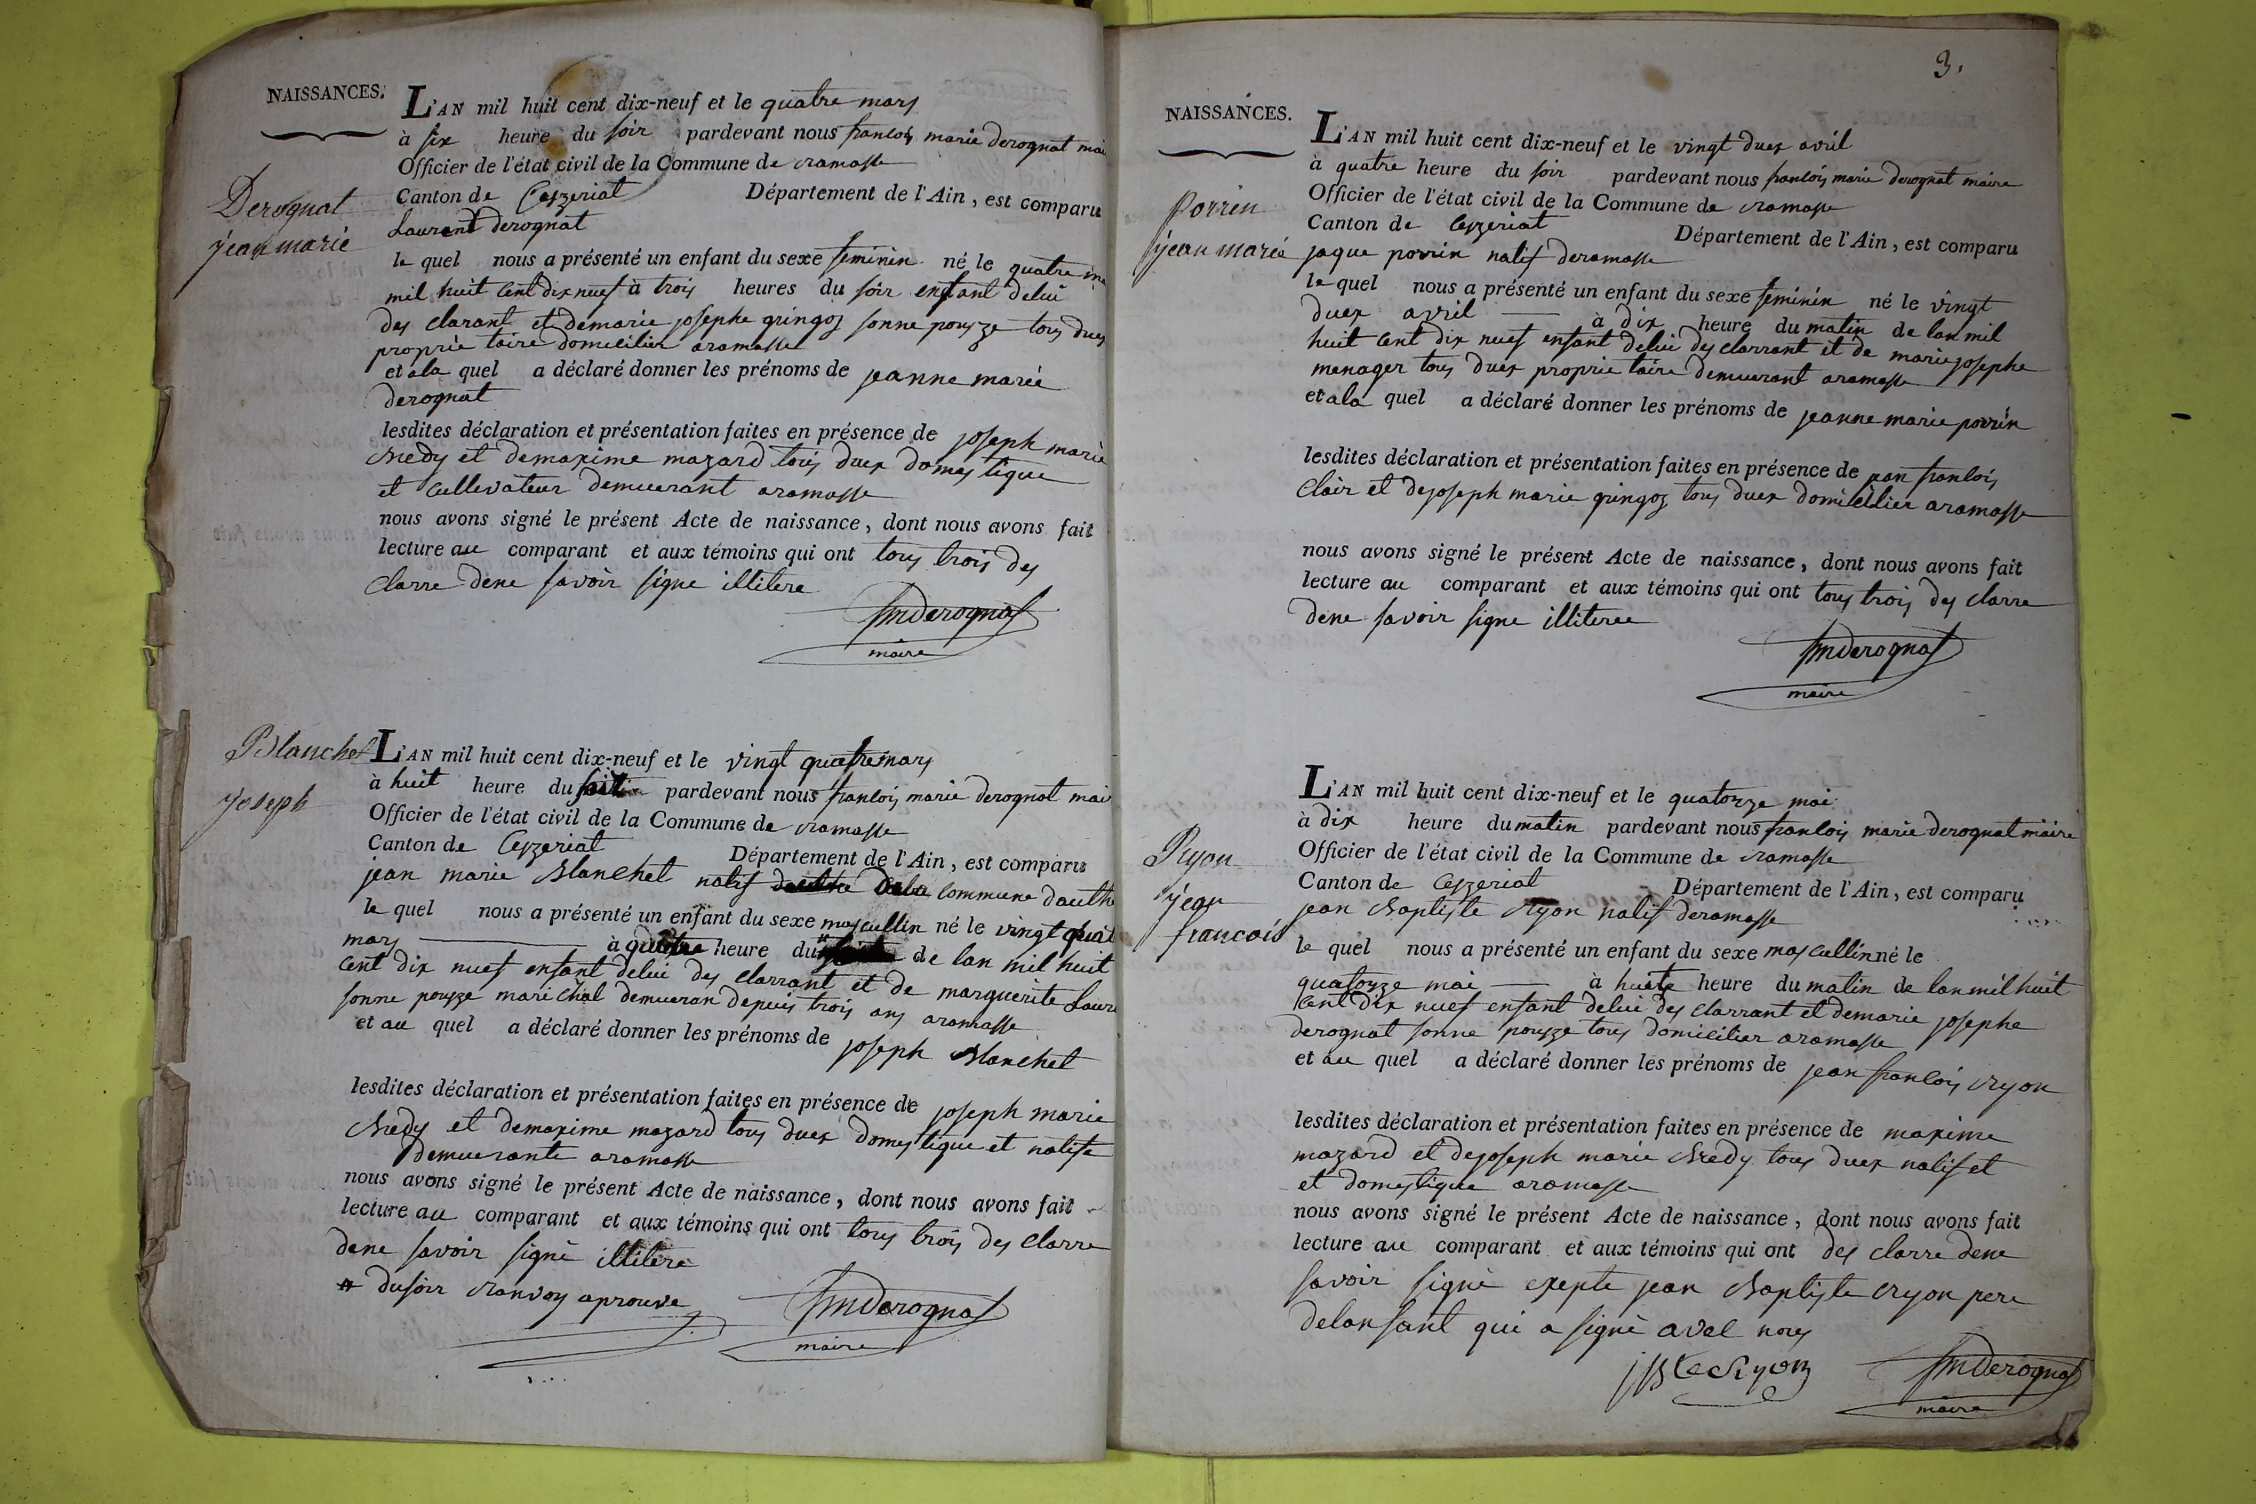 NAISSANCES.
L'AN mil huit cent dix-neuf et le quatre mars
à six heure du soir pardevant nous francois marie derognat mai
Officier de l'état civil de la Commune de ramasse
Canton de Ceyzeriat Département de l'Ain, est comparu
Derognat
jean marie
Laurent derognat
le quel nous a présenté un enfant du sexe feminin né le quatre
mil huit cent dix nuef à trois heures du soir enfant delui
des clarant et demarie josephe gringoz sonne pouyze tous dues
proprie taire domicilier aramasse
et ala quel a déclaré donner les prénoms de jeanne marie
derognat
lesdites déclaration et présentation faites en présence de joseph marie
et demaxime mazard tous dues domestique
et cullevateur demuerant aramasse
nous avons signé le présent Acte de naissance, dont nous avons fait
lecture au comparant et aux témoins qui ont tous trois des
clarre dene savoir signe illitere
fmderognat
maire
Blanchet
joseph
L'AN mil huit cent dix-neuf et le vingt quatre mars
à huit heure du pardevant nous francois marie derognat mair
Officier de l'état civil de la Commune de ramasse
Canton de Ceyzeriat Département de l'Ain, est comparu
jean marie Blanchet natif dela commune
le quel nous a présenté un enfant du sexe mascullin né le vingt quat
mars à quatre heure du de lan mil huit
cent dix nuef enfant delui des clarrant et de marguerite Laure
sonne pouyze marichal demueran depuis trois ans aramasse
et au quel a déclaré donner les prénoms de joseph Blanchet
lesdites déclaration et présentation faites en présence de joseph marie
et demaxime mazard tous dues domestique et natife
demuerante aramasse
nous avons signé le présent Acte de naissance, dont nous avons fait
lecture au comparant et aux témoins qui ont tous trois des clarre
dene savoir signé illitere
# dusoir ranvoy aprouve
fmderognat
maire
3.
NAISSANCES.
L'AN mil huit cent dix-neuf et le vingt dues avril
à quatre heure du soir pardevant nous francois marie derognat maire
Officier de l'état civil de la Commune de ramasse
Canton de Ceyzeriat Département de l'Ain, est comparu
Porrin
jean marie
jaque porrin natif deramasse
le quel nous a présenté un enfant du sexe feminin né le vingt
dues avril à dix heure du matin de lan mil
huit cent dix nuef enfant delui des clarrant et de marie josephe
menager tous dues proprie taire demuerant aramasse
et ala quel a déclaré donner les prénoms de jeanne marie porrin
lesdites déclaration et présentation faites en présence de jean francois
Clair et dejoseph marie gringoz tous dues domicilier aramasse
nous avons signé le présent Acte de naissance, dont nous avons fait
lecture au comparant et aux témoins qui ont tous trois des clarre
dene savoir signe illiteree
fmderognat
maire
L'AN mil huit cent dix-neuf et le quatorze mai
à dix heure du matin pardevant nous francois marie derognat maire
Officier de l'état civil de la Commune de ramasse
Canton de Ceyzeriat Département de l'Ain, est comparu
Ryon
jean
francois
jean Baptiste Ryon natif deramasse
le quel nous a présenté un enfant du sexe mascullin né le
quatorze mai à huite heure du matin de lan mil huit
cent dix nuef enfant delui des clarrant et demarie josephe
derognat sonne pouyze tous domicilier aramasse
et au quel a déclaré donner les prénoms de jean francois ryon
lesdites déclaration et présentation faites en présence de maxime
mazard et dejoseph marie tous dues natif et
et domestique aramasse
nous avons signé le présent Acte de naissance, dont nous avons fait
lecture au comparant et aux témoins qui ont des clarre dene
savoir signé exepte jean Baptiste ryon pere
delansant qui a signé avec nous
fmderognat
maire